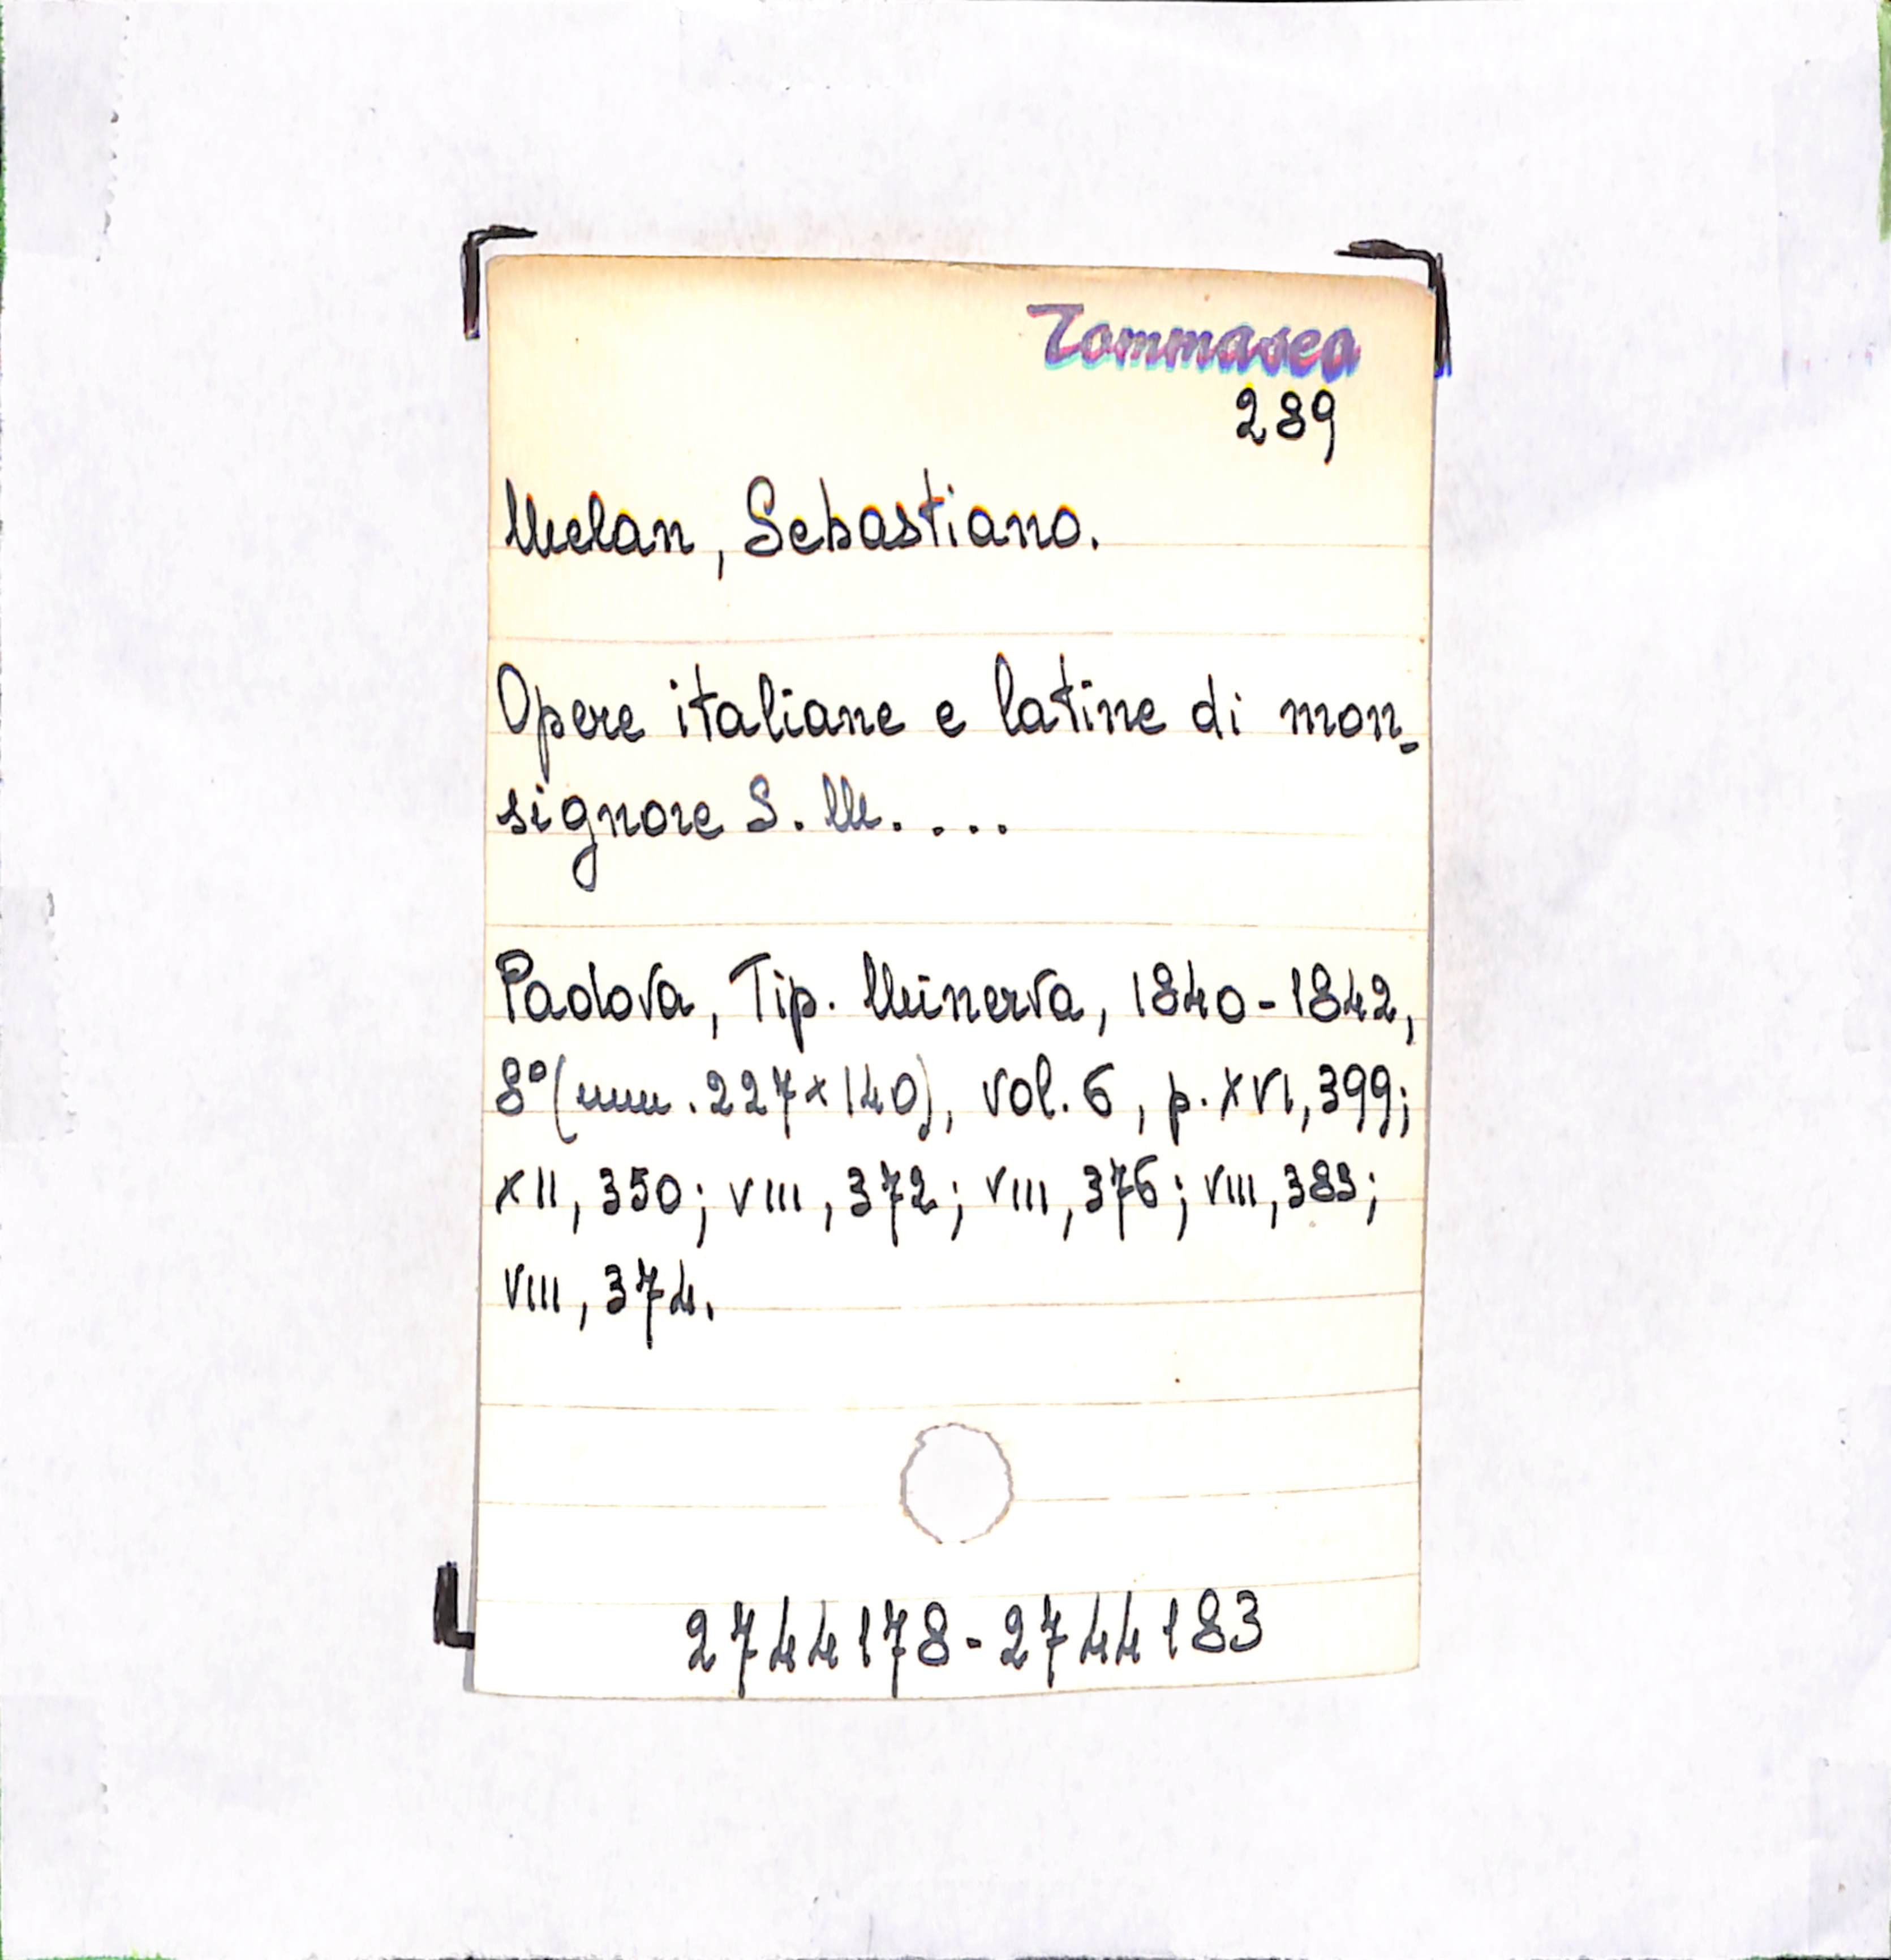 Tommaseo
289
Melan, Sebastiano.
Opere italiane e latine di mon-
signore S. M. ...
Padova, Tip. Minerva, 1840-1842,
8° (mm. 227x140), vol. 6, p. XVI, 399;
XII, 350; VIII, 372; VIII, 376; VIII, 383;
VIII, 374.
2744178-2744183